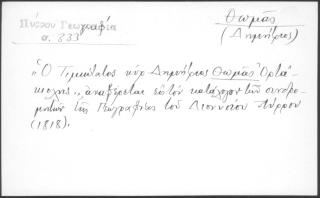 Πύρρου Γεωγραφία
σ. 833
Θωμᾶς
(Δημήτριος)
"Ὁ Τιμιώτατος κὺρ Δημήτριος Θωμᾶς Ὀρτά-
κιολης", ἀναφέρεται εἰς τὸν κατάλογον τῶν συνδρο-
μητῶν τῆς Γεωγραφίας τοῦ Διονυσίου Πύρρου
(1818).